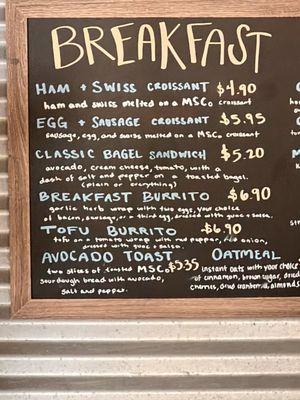 BREAKFAST
HAM + SWISS CROISSANT $4.90
ham and swiss melted on a MSCo croissant
EGG + SAUSAGE CROISSANT $5.95
sausage, egg, and swiss melted on a MSCo croissant
CLASSIC BAGEL SANDWICH $5.20
avocado, cream cheese, tomato, with a
dash of salt and pepper on a toasted bagel.
(plain or everything)
BREAKFAST BURRITO $6.90
garlic herb wrap with two eggs, your choice
of bacon, sausage, or a third egg, dressed with guac + salsa.
TOFU BURRITO $6.90
tofu on a tomato wrap with red pepper, onion,
dressed with guac + salsa.
AVOCADO TOAST $5.35
two slices of toasted MSCo
sourdough bread with avocado,
salt and pepper.
OATMEAL
instant oats with your choice
of cinnamon, brown sugar, dried
cherries, dried cranberries, almonds